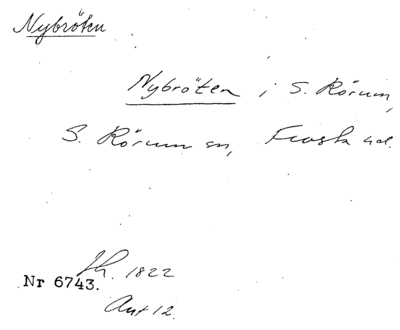 Nybröten
Nybröten i S. Rörum,
S. Rörum sn, Frosta hd.
Jh. 1822
Nr 6743.
Avt 12.